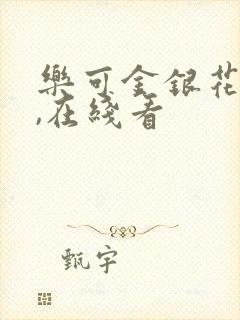 樂可金銀花
,在綫看
甄宇